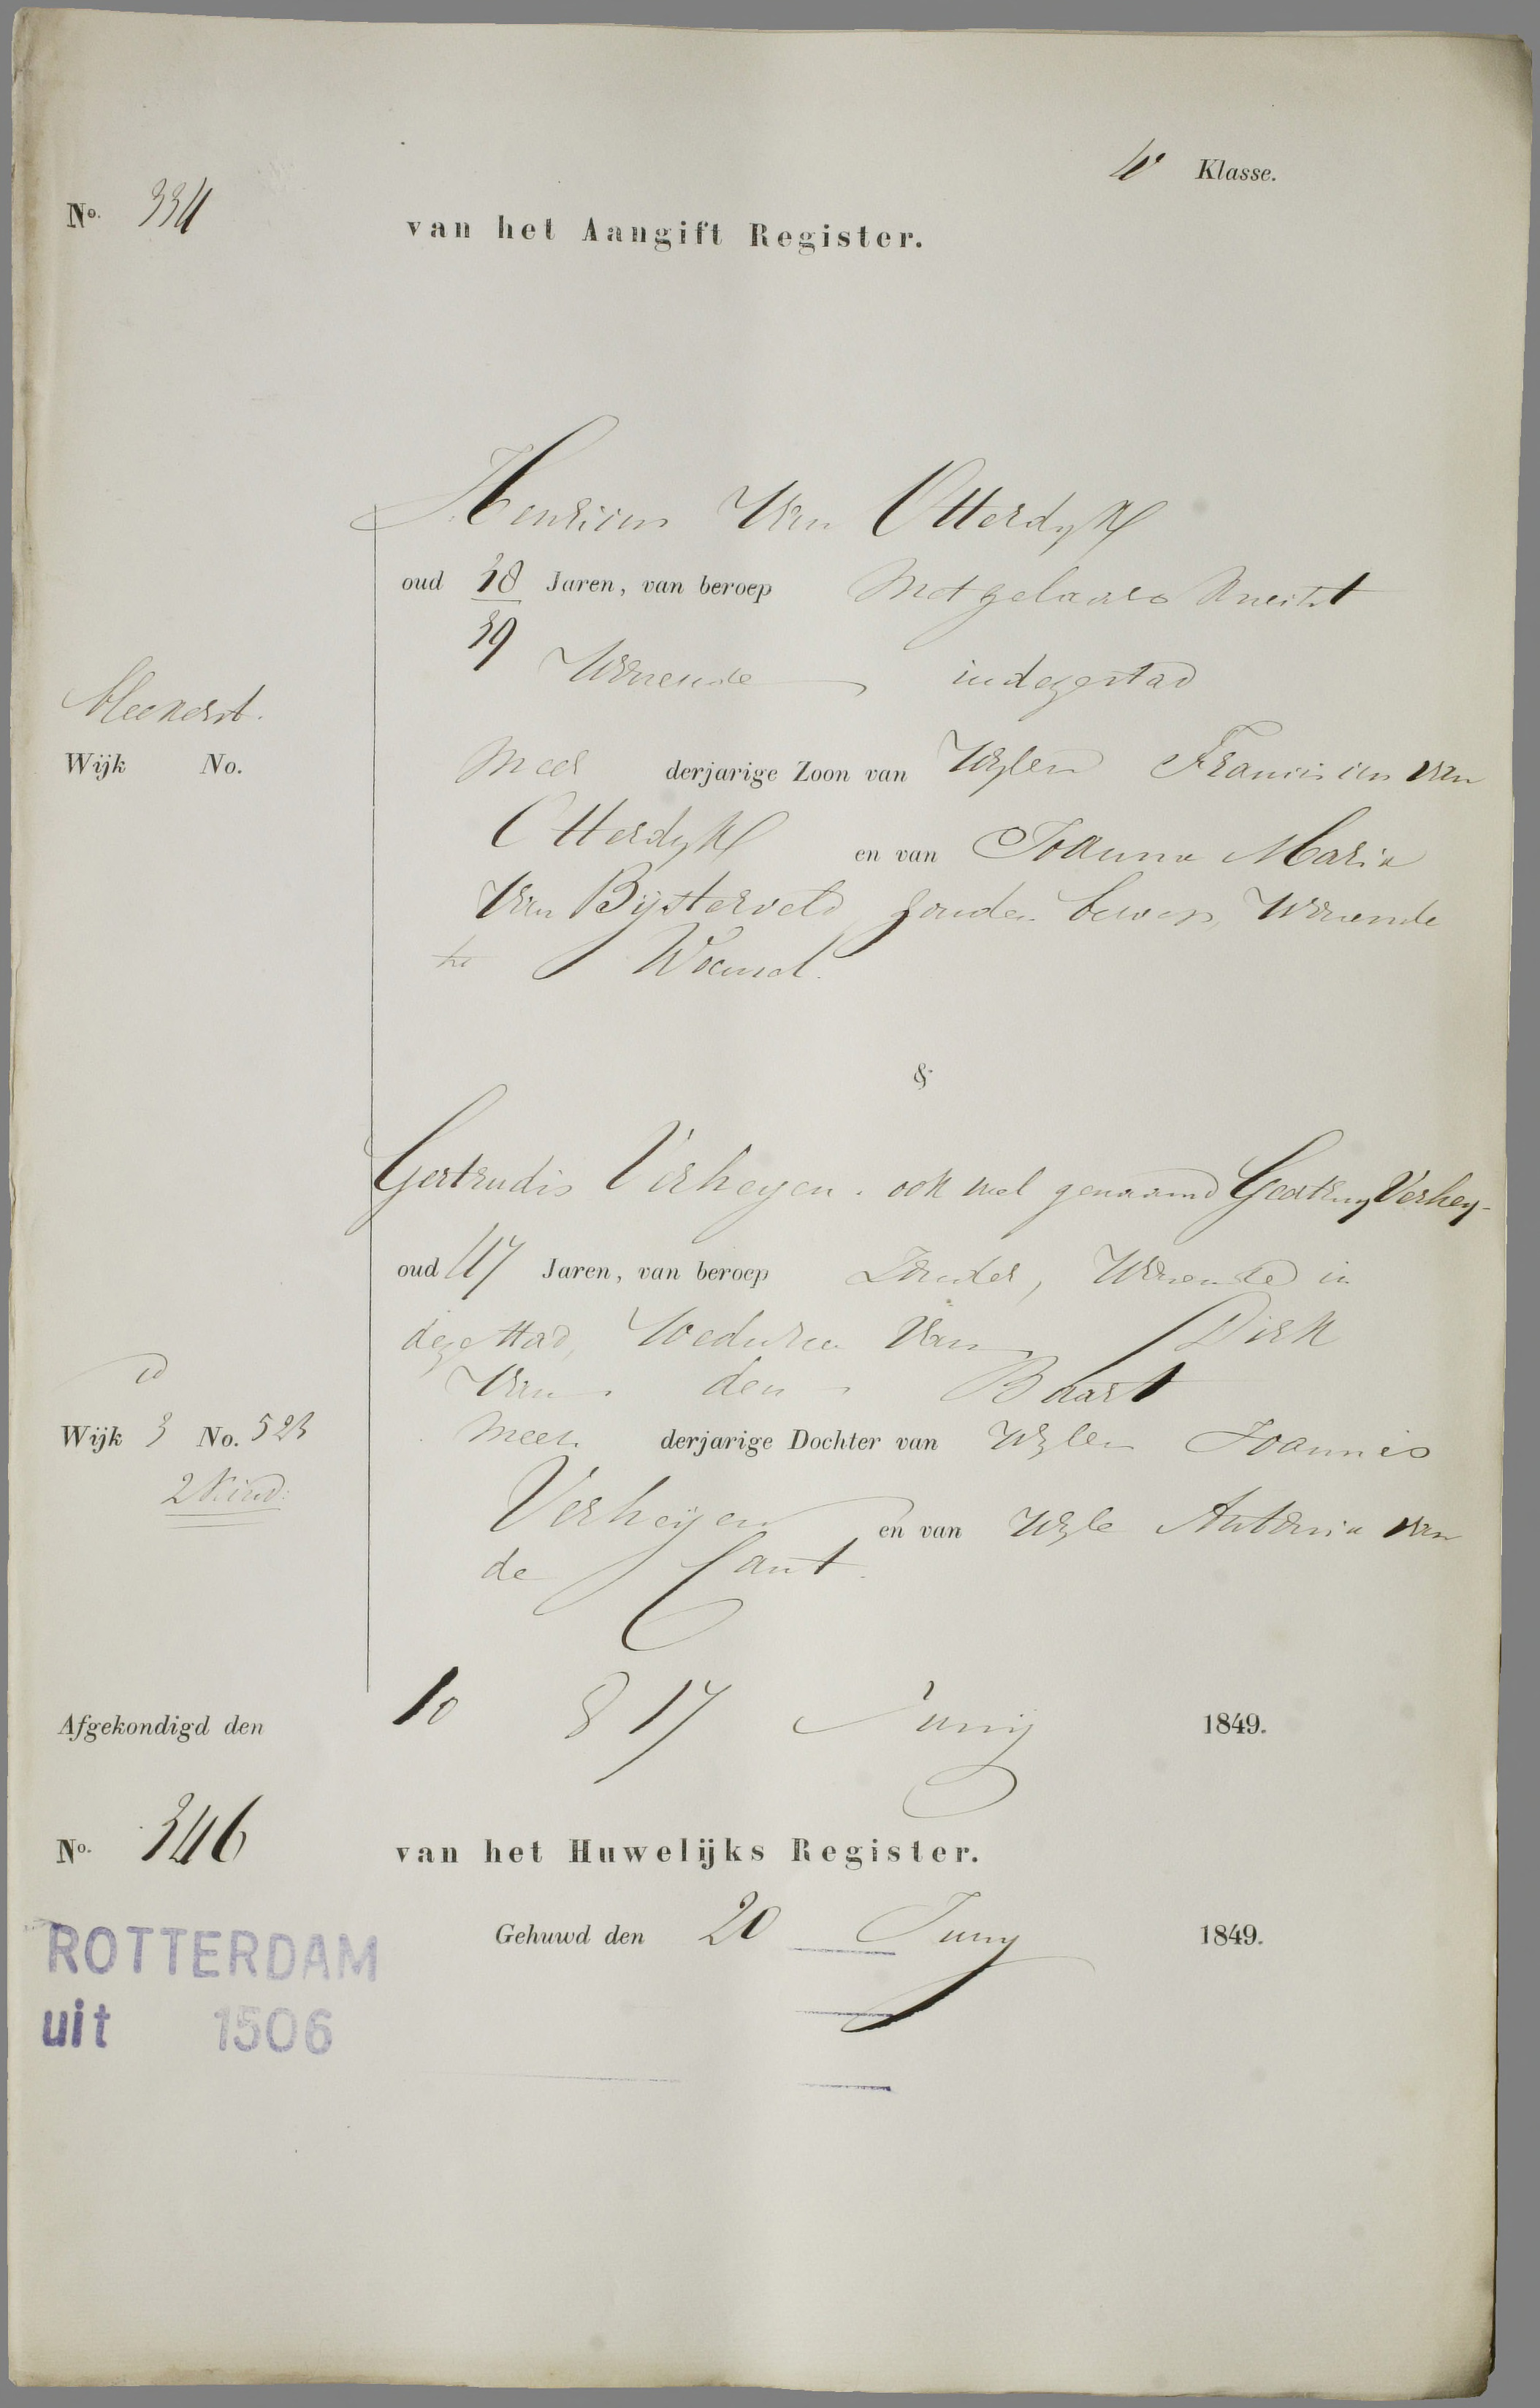 4e Klasse.
No. 334 van het Aangift Register.
Henricus Van Otterdyk
oud 38 Jaren, van beroep Metzelaars Knecht
39 Wonende in deze stad
Wijk No.
Meer derjarige Zoon van Wylen Franciscus van
Otterdyk en van Joanna Maria
Van Bijsterveld, zonder beroep, Wonende
te Woensel.
&
Gertrudis Verheyen. ook wel genaamd Geertruy Verhey-
oud 47 Jaren, van beroep Zonder, Wonende in
deze stad, Weduwe Van Dirk
Van den Baart
id
Wijk 3 No. 523 Meer derjarige Dochter van Wylen Joannes
2 Kind:
Verheijen en van Wyle Antonia van
de Cant.
Afgekondigd den 10 & 17 Junij 1849.
No. 346 van het Huwelijks Register.
Gehuwd den 20 Juny 1849.
ROTTERDAM
uit 1506